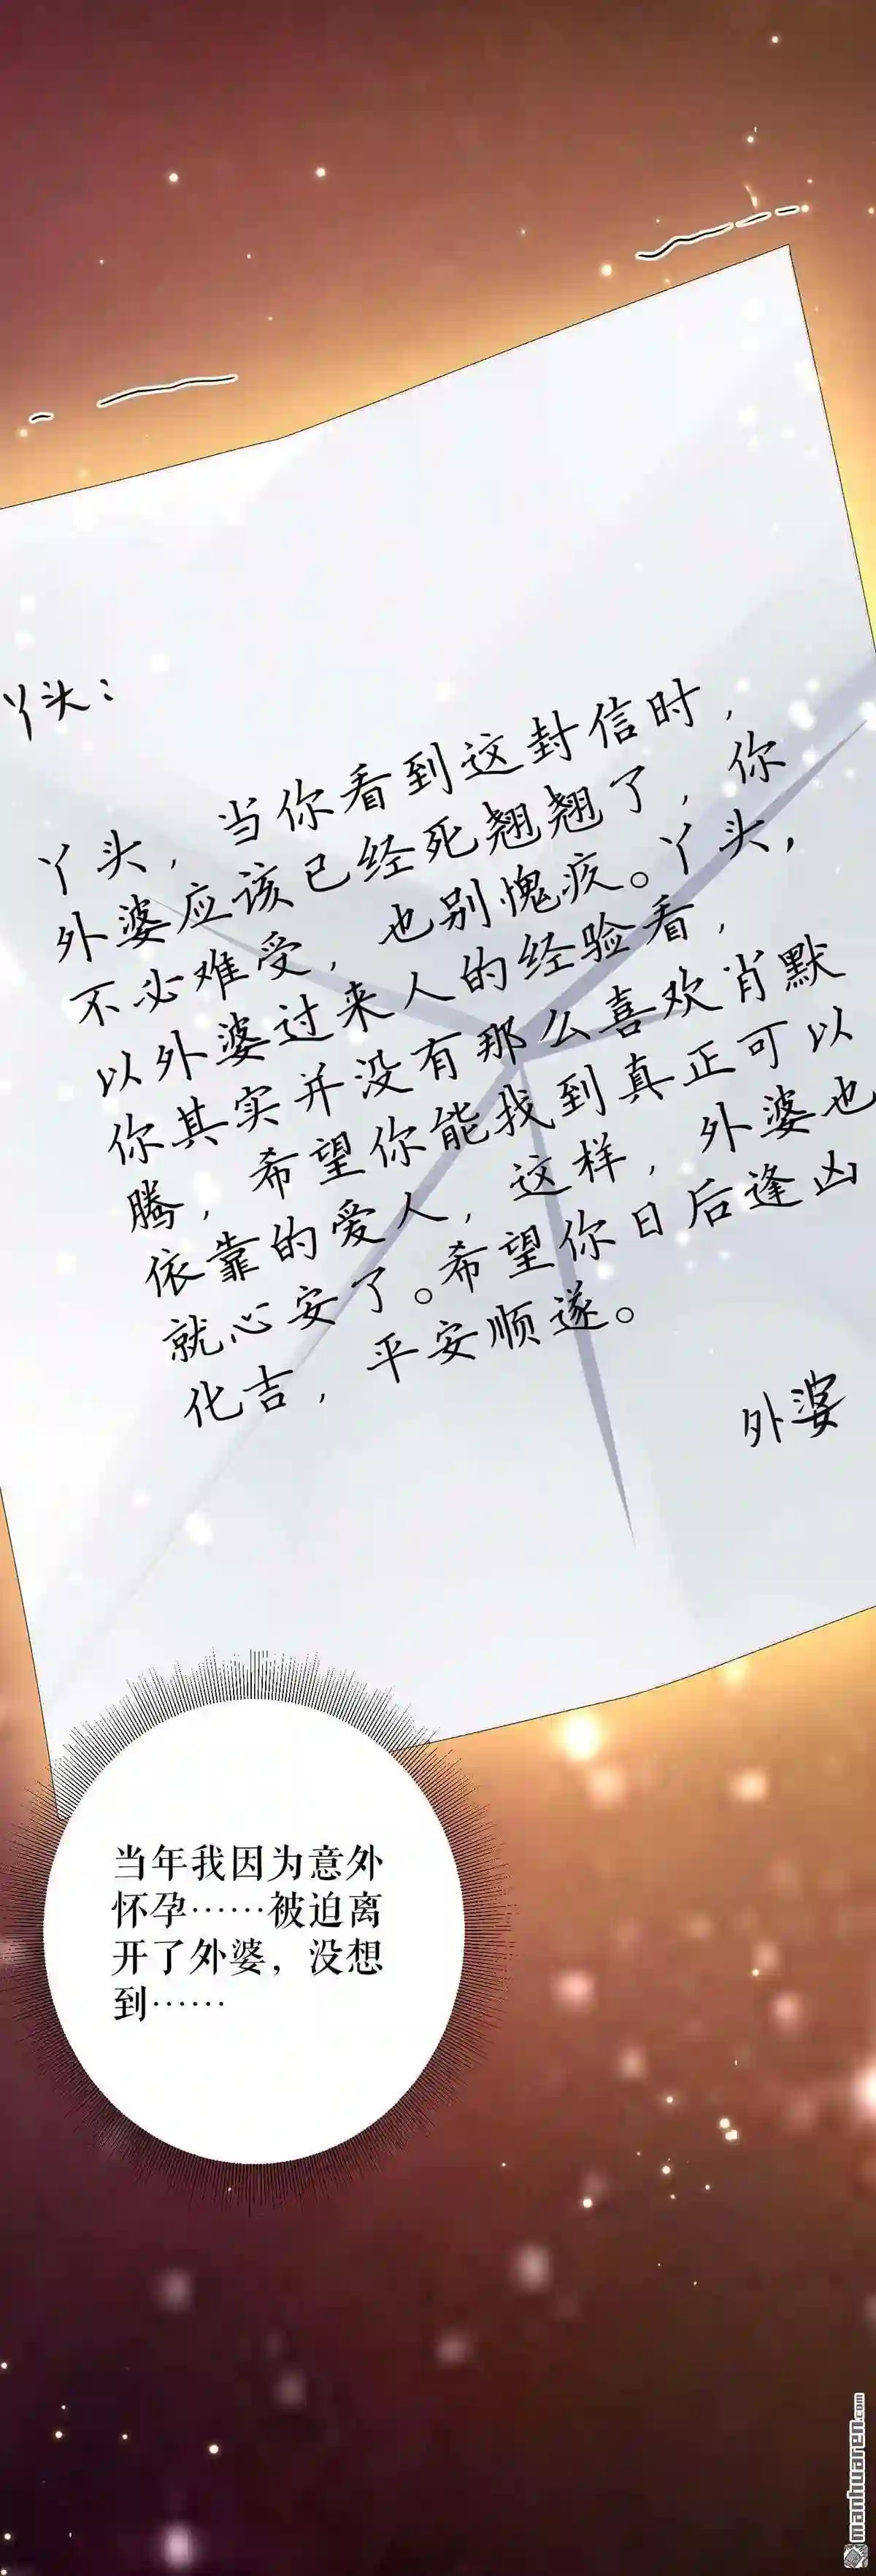 丫头：
丫头，当你看到这封信时，
外婆应该已经死翘翘了，你
不必难受，也别愧疚。丫头，
以外婆过来人的经验看，
你其实并没有那么喜欢肖默
腾，希望你能找到真正可以
依靠的爱人，这样，外婆也
就心安了。希望你日后逢凶
化吉，平安顺遂。
外婆
当年我因为意外
怀孕……被迫离
开了外婆，没想
到……
manhuaren.com